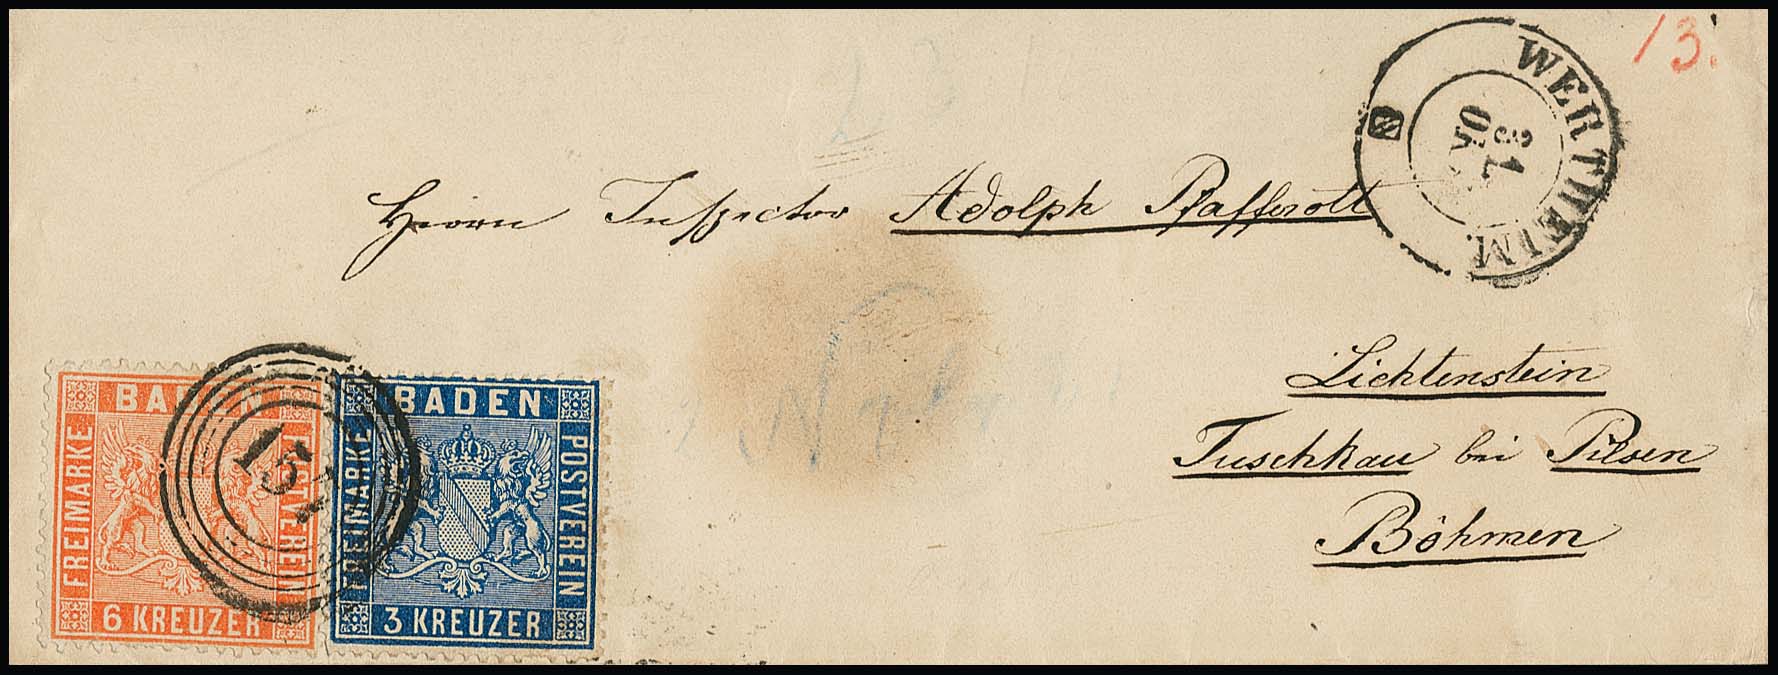 13.
WERTHEIM.
31
OK
Herrn Inspector Adolph Pfafferott
Lichtenstein
Tuschkau bei Pilsen
Böhmen
BADEN
FREIMARKE
POSTVEREIN
6 KREUZER
BADEN
FREIMARKE
POSTVEREIN
3 KREUZER